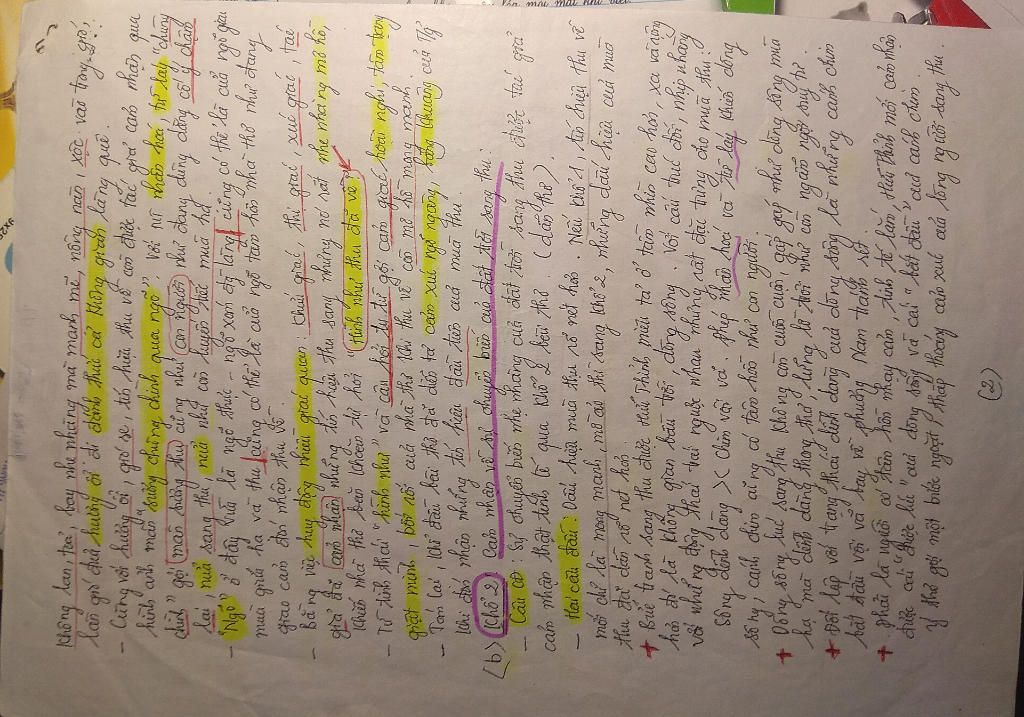 không lan, toả, bay nhẹ nhưng mà mạnh mẽ, nồng nàn, xộc vào trong gió,
làn gió đưa hương ổi đi đánh thức cả không gian làng quê.
- Cùng với hương ổi, gió se, tín hiệu thu về còn được tác giả cảm nhận qua
hình ảnh màn "sương chùng chình qua ngõ". Với NT nhân hoá, từ láy "chùng
chình" gợi màn sương thu cũng như con người như đang dùng dằng cố ý chậm
lại nửa sang thu, nửa như còn luyến tiếc mùa hạ.
- "Ngõ" ở đây vừa là ngõ thực - ngõ xóm đg làng, cũng có thể là cửa ngõ giữa
mùa giữa hạ và thu, cũng có thể là cửa ngõ tâm hồn nhà thơ như đang
giao cảm đón nhận thu về
- Bằng việc huy động nhiều giác quan: khứu giác, thị giác, xúc giác, tác
giả đã cảm nhận những tín hiệu thu sang nhưng nó rất nhẹ nhàng mơ hồ
khiến nhà thơ băn khoăn tự hỏi "Hình như thu đã về"
- Từ tình thái "hình như" và câu hỏi tu từ gợi cảm giác hoài nghi, tâm trạng
giật mình, bối rối của nhà thơ khi thu về còn mơ hồ mong manh.
- Tóm lại, khổ đầu bài thơ đã diễn tả cảm xúc ngỡ ngàng, bâng khuâng của TG
khi đón nhận những tín hiệu đầu tiên của mùa thu.
(b) Khổ 2: Cảm nhận về sự chuyển biến của đất trời sang thu.
- Câu CĐ: Sự chuyển biến nhẹ nhàng của đất trời sang thu được tác giả
cảm nhận thật tinh tế qua khổ 2 bài thơ. (dẫn thơ).
- Hai câu đầu: Dấu hiệu mùa thu rõ nét hơn. Nếu khổ 1, tín hiệu thu về
mới chỉ là mong manh, mơ hồ thì sang khổ 2, những dấu hiệu của mùa
thu đã dần rõ nét hơn.
+ Bức tranh sang thu được Hữu Thỉnh miêu tả ở tầm nhìn cao hơn, xa và rộng
hơn đó là không gian bầu trời, dòng sông. Với cấu trúc đối, nhịp nhàng
với những động thái trái ngược nhau nhưng rất đặc trưng cho mùa thu:
Sông dềnh dàng >< Chim vội vã. Phép nhân hoá và từ láy khiến dòng
sông, cánh chim cũng có tâm hồn như con người.
+ Dòng sông lúc sang thu không còn cuồn cuộn, gấp gáp như dòng sông mùa
hạ mà dềnh dàng thong thả, lững lờ trôi như còn ngẫm ngợi suy tư
+ Đối lập với trạng thái dềnh dàng của dòng sông là những cánh chim
bắt đầu vội vã bay về phương Nam tránh rét.
+ phải là người có tâm hồn nhạy cảm tinh tế lắm Hữu Thỉnh mới cảm nhận
được cái "được lúc" của dòng sông và cái "bắt đầu" của cánh chim.
Ý thơ gợi một bước ngoặt, thấp thoáng cảm xúc của lòng người sang thu.
(2)